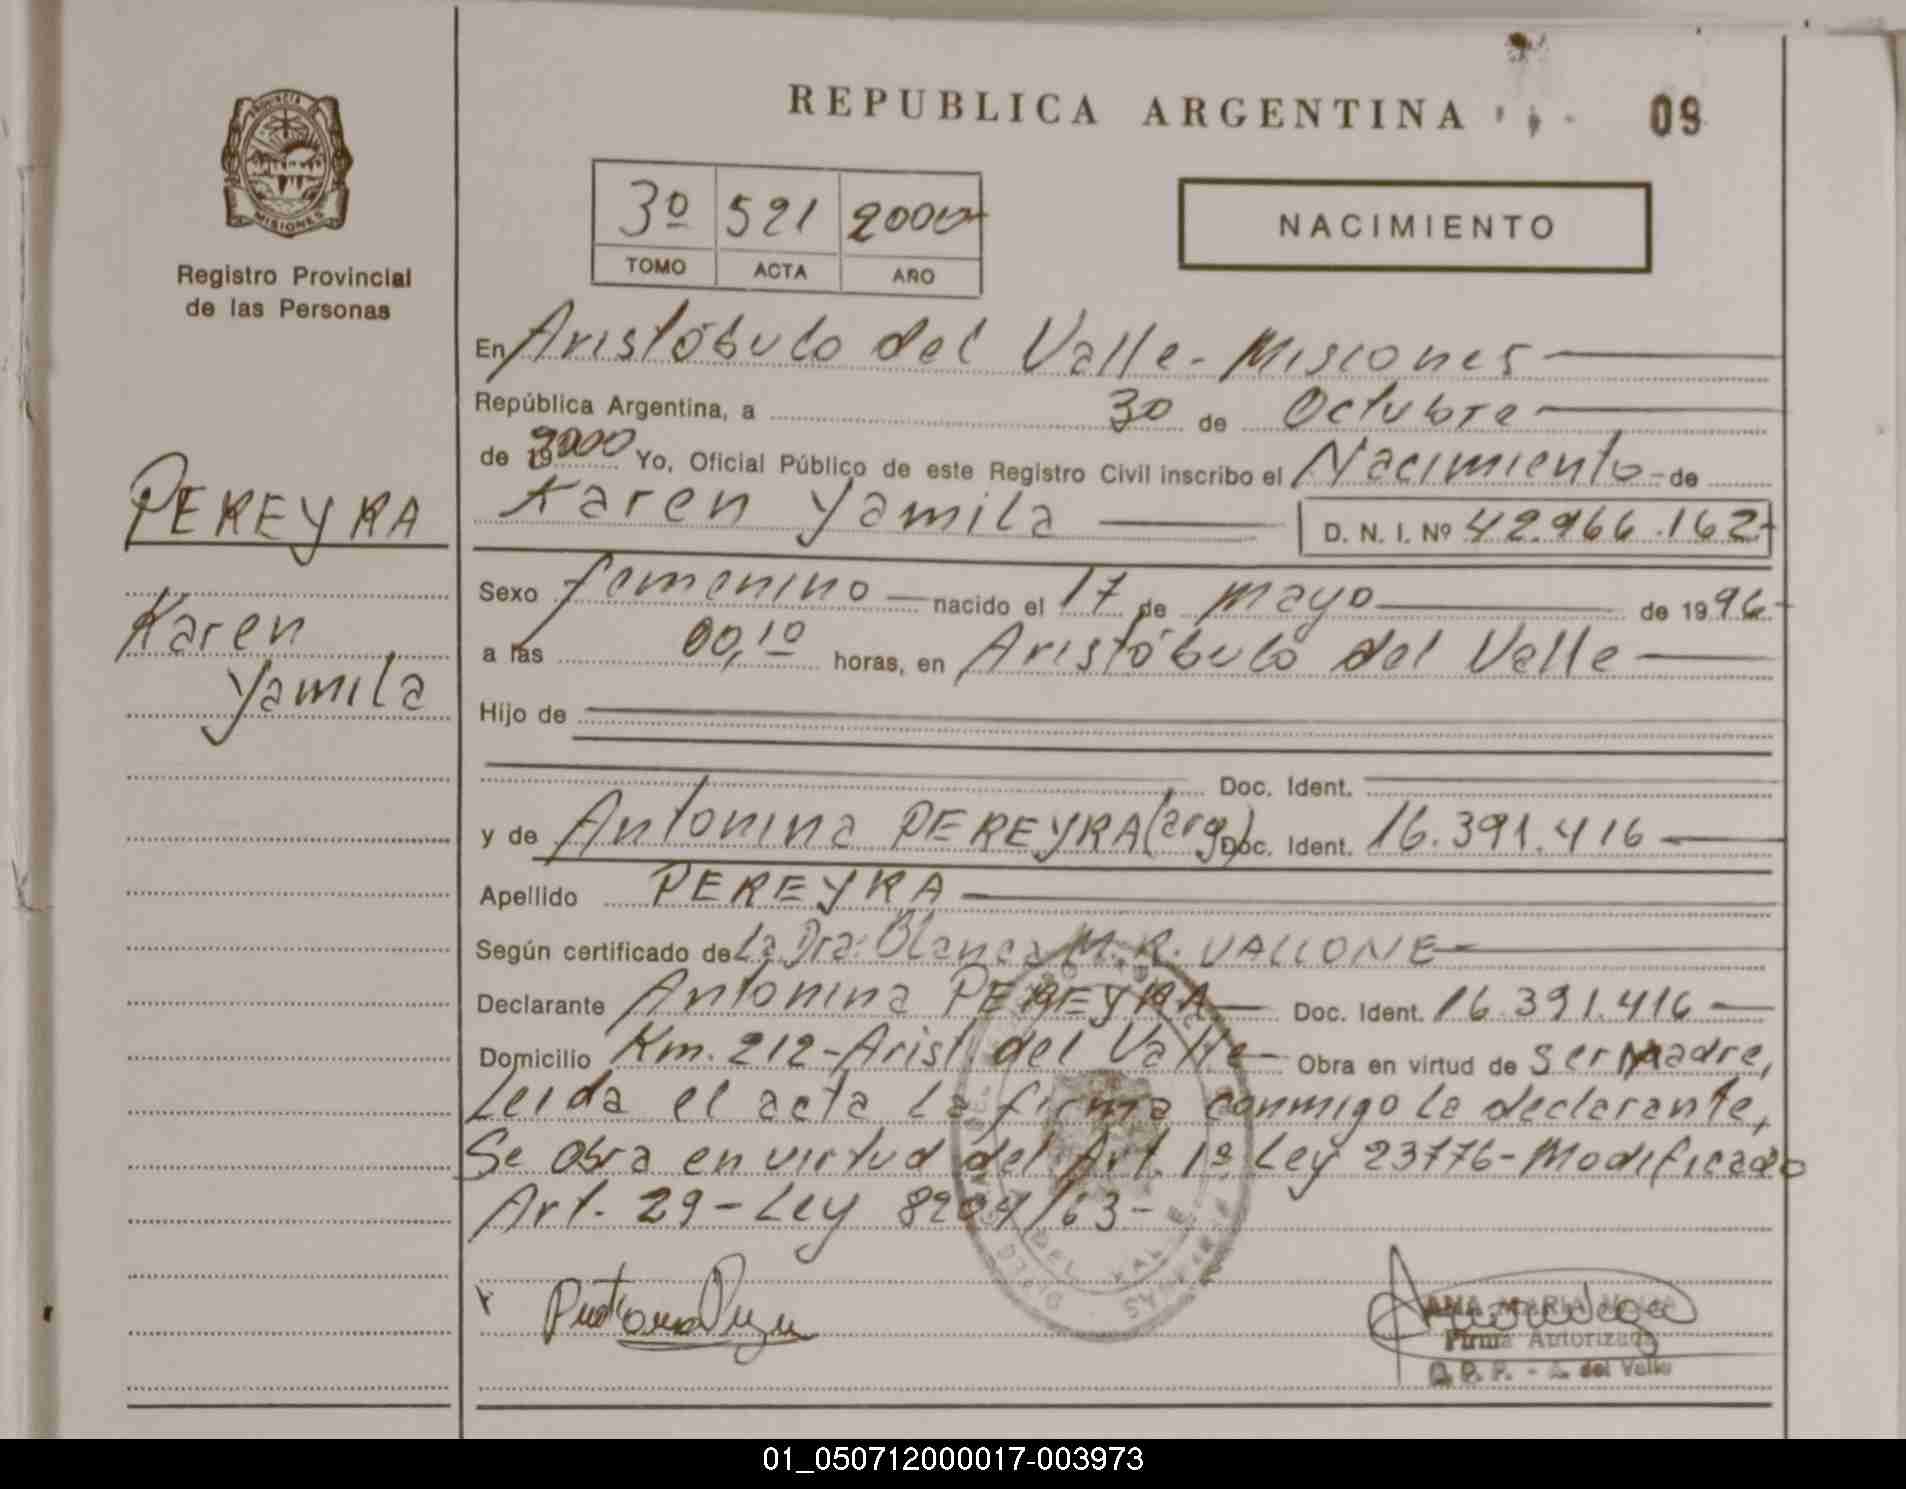 REPUBLICA ARGENTINA
09
PROVINCIA DE
MISIONES
Registro Provincial
de las Personas
3º 521 2000
TOMO ACTA AÑO
NACIMIENTO
En Aristóbulo del Valle - Misiones
República Argentina, a 30 de Octubre
de 19 2000 Yo, Oficial Público de este Registro Civil inscribo el Nacimiento - de
PEREYRA
Karen Yamila D. N. I. Nº 42.966.162
Sexo femenino nacido el 17 de mayo de 1996
Karen
Yamila
a las 00,10 horas, en Aristóbulo del Valle
Hijo de
Doc. Ident.
y de Antonina PEREYRA (arg) Doc. Ident. 16.391.416
Apellido PEREYRA
Según certificado de La Dra. Blanca M. R. VALLONE
Declarante Antonina PEREYRA Doc. Ident. 16.391.416
Domicilio Km. 212 - Arist. del Valle Obra en virtud de ser Madre,
Leida el acta la firma conmigo la declarante,
Se obra en virtud del Art. 1º Ley 23776 - Modificado
Art. 29 - Ley 8204/63 -
DEL VALLE
ANA MARIA
Firma Autorizada
- A. del Valle
01_050712000017-003973